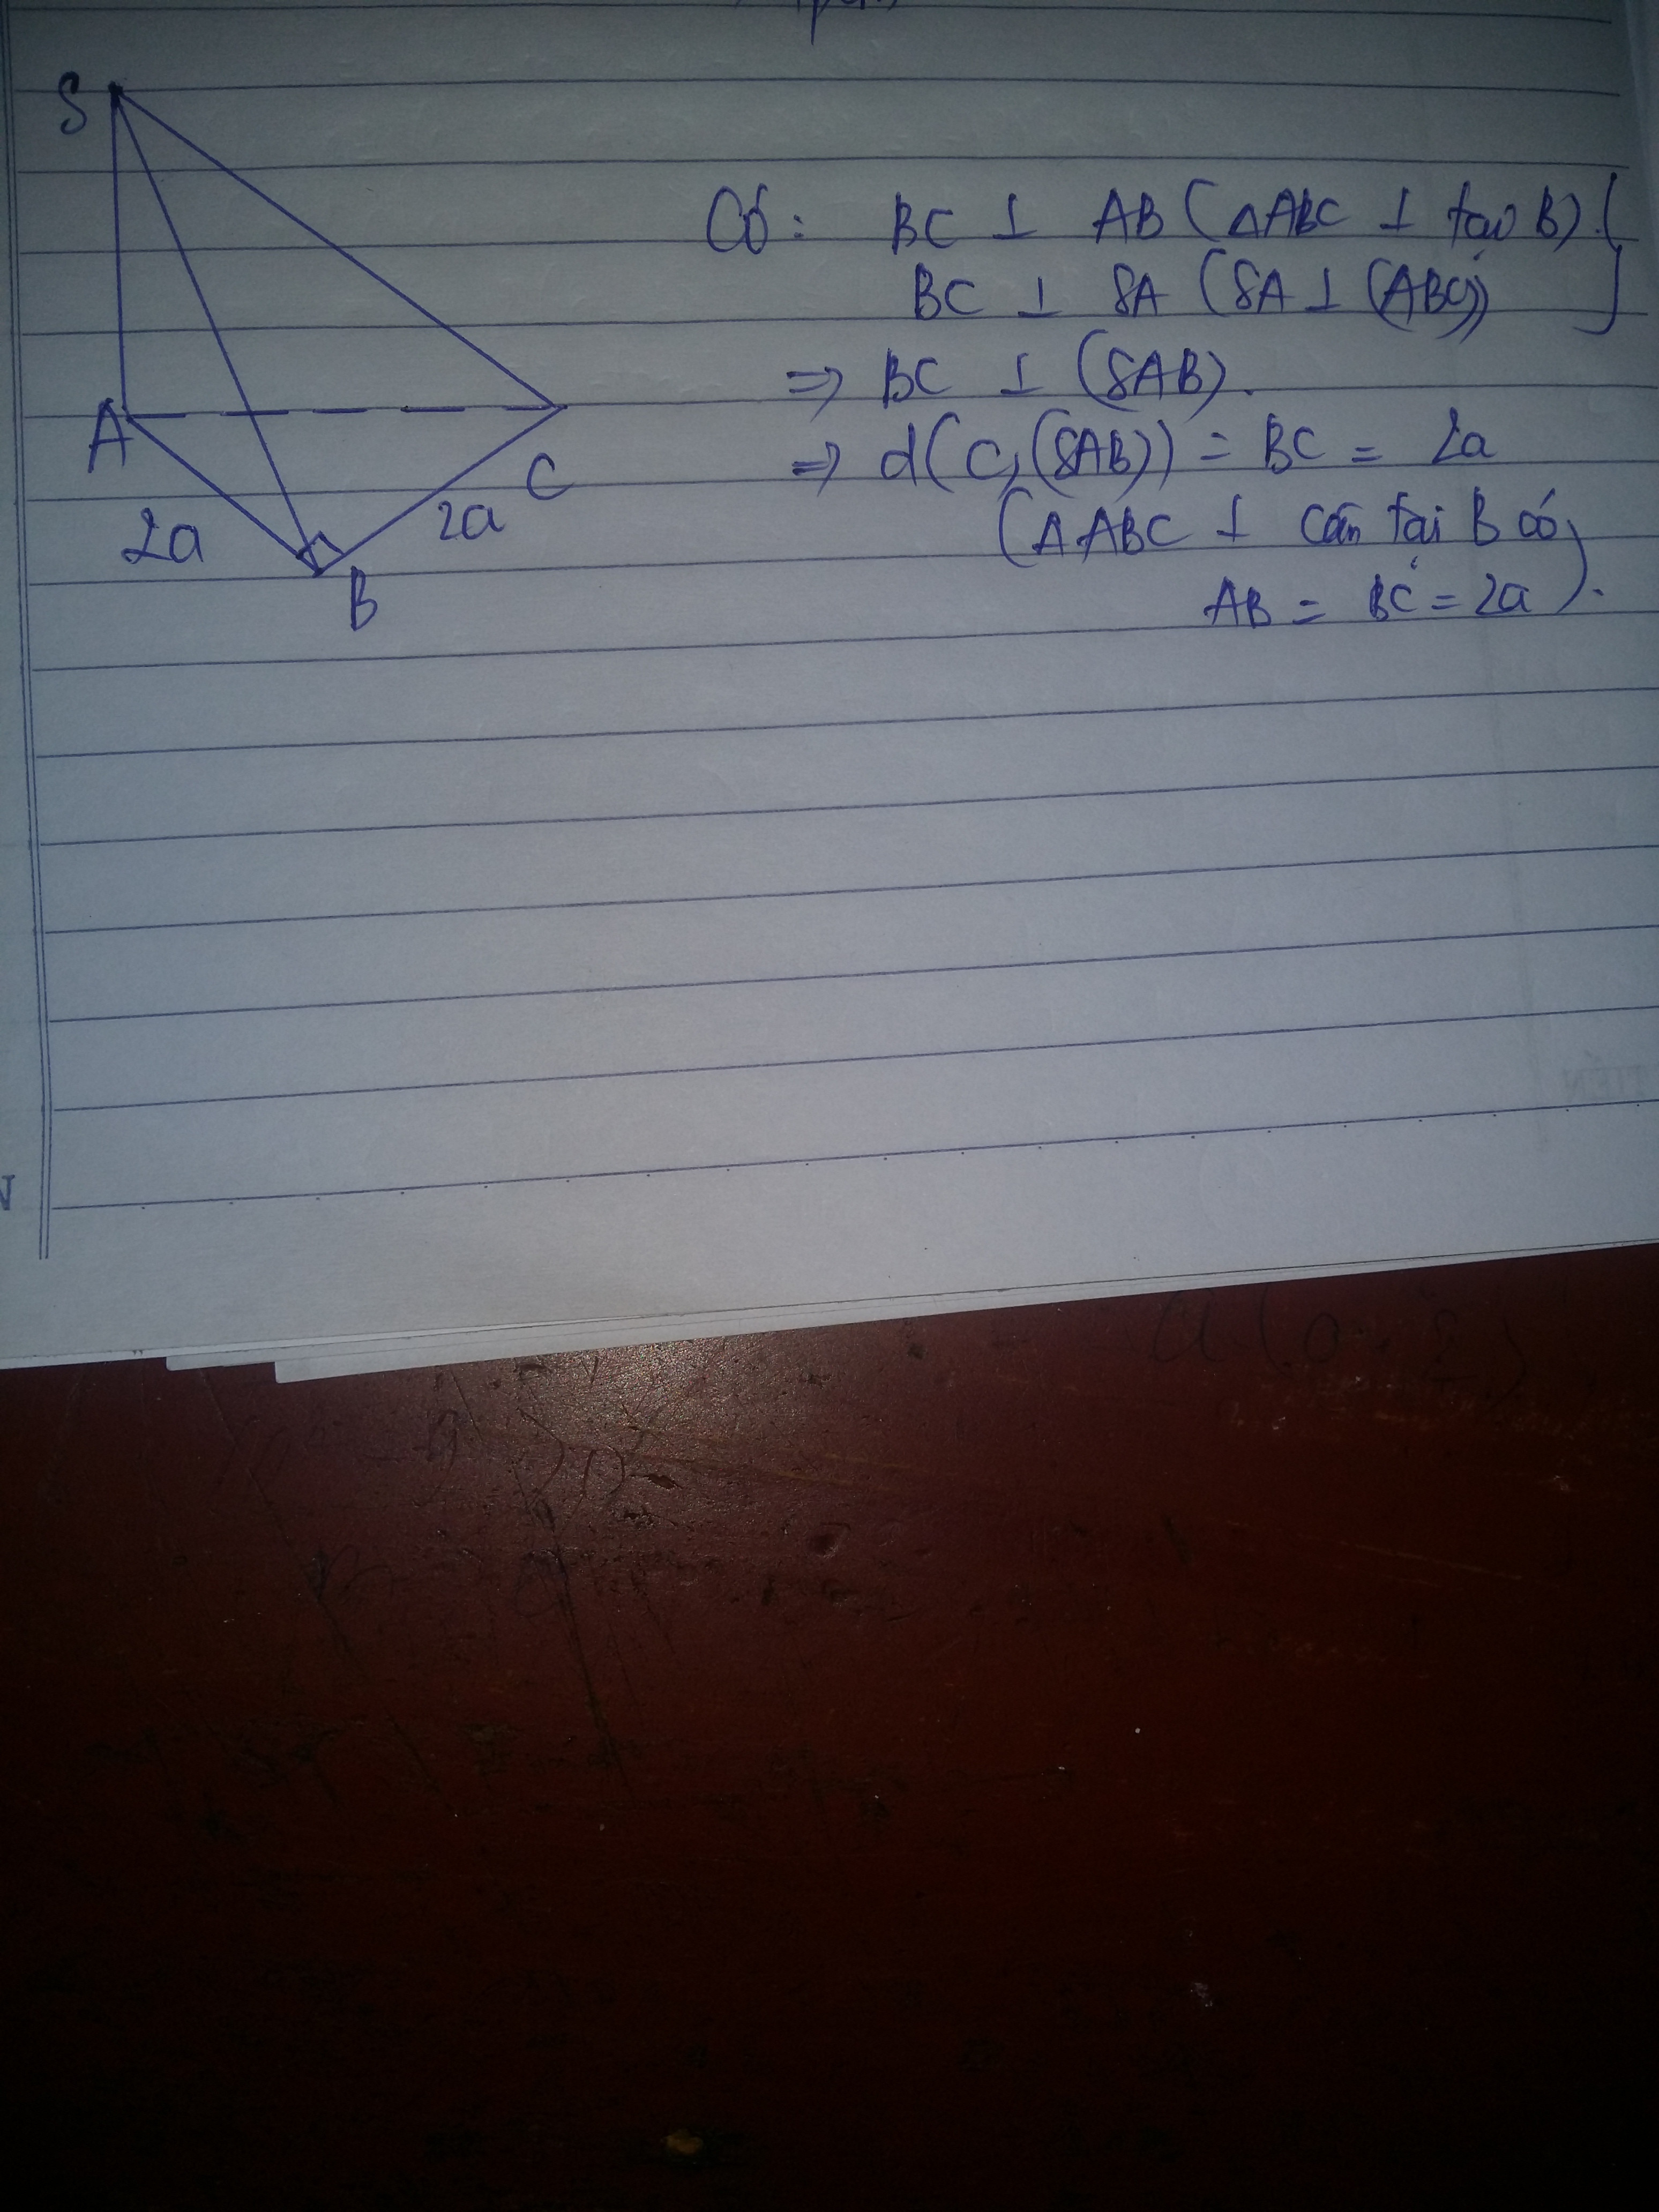 S
A
C
B
2a
2a
Có: BC ⊥ AB (△ABC ⊥ tại B).
BC ⊥ SA (SA ⊥ (ABC))
=> BC ⊥ (SAB).
=> d(C,(SAB)) = BC = 2a
(△ABC ⊥ cân tại B có
AB = BC = 2a).